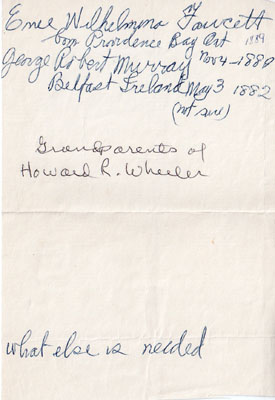 Enie Wilhelmena Fawcett
born Providence Bay Ont 1884
George Robert Murray Nov 4 - 1880
Belfast Ireland May 3 1882
(not sure)
Grandparents of
Howard R. Wheeler
what else is needed